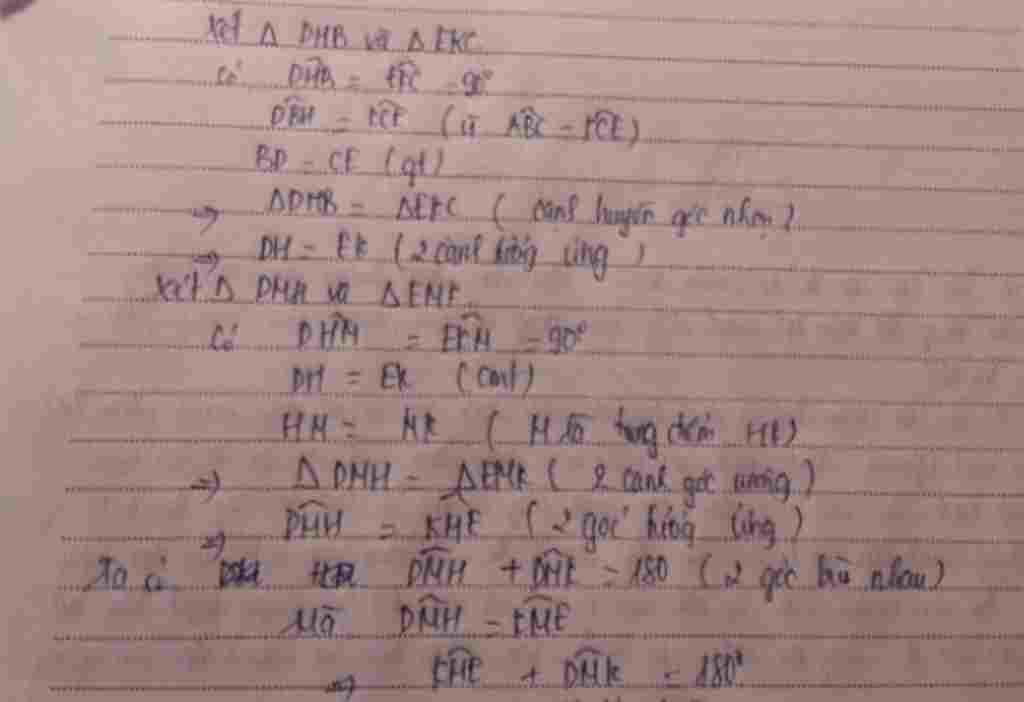 Xét Δ DHB và Δ EKC
Có DHB = EKC = 90°
DBH = KCE (vì ABC = KCE)
BD = CE (gt)
=> ΔDHB = ΔEKC ( cạnh huyền góc nhọn )
=> DH = EK ( 2 cạnh tương ứng )
Xét Δ DMH và ΔEMK
Có DHM = EKM = 90°
DH = EK (cmt)
HM = MK ( M là trung điểm HK)
=> Δ DMH = ΔEMK ( 2 cạnh góc vuông )
=> DMH = KME ( 2 góc tương ứng )
Ta có DMH + DMK = 180 ( 2 góc bù nhau )
Mà DMH = KME
=> KME + DMK = 180°